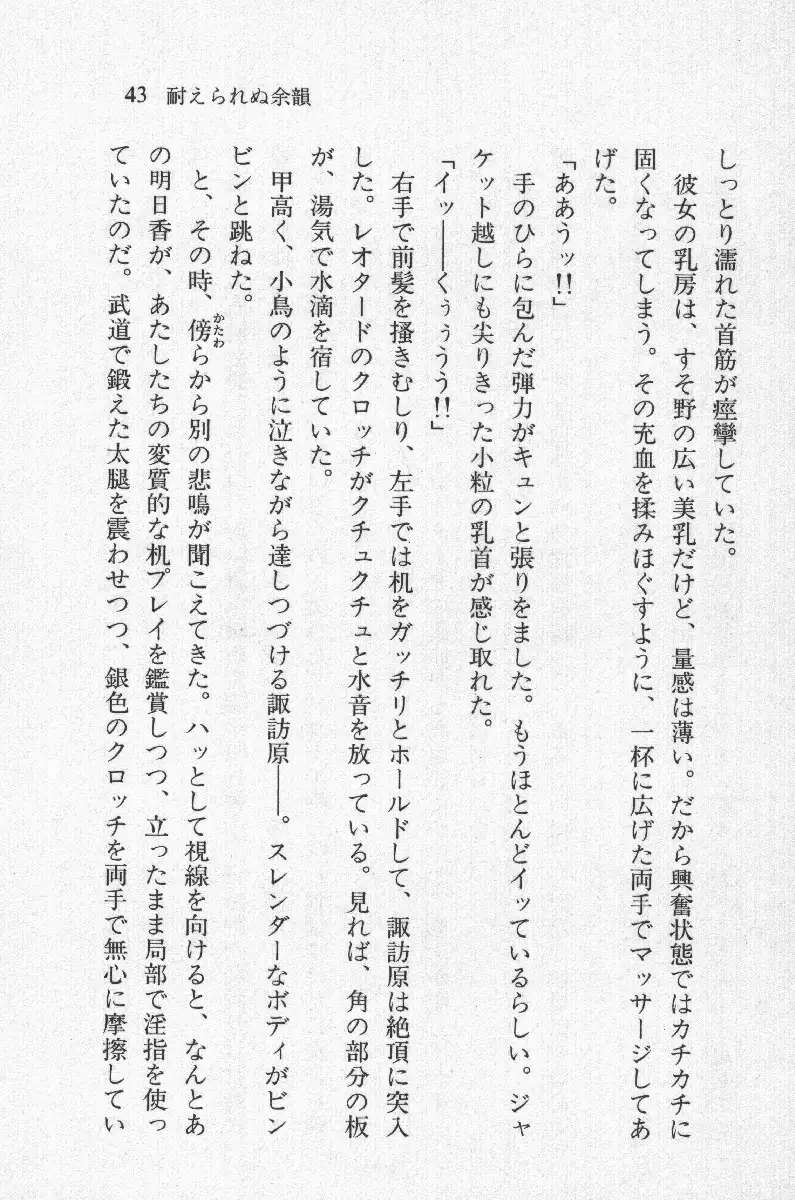 43 耐えられぬ余韻
しっとり濡れた首筋が痙攣していた。
彼女の乳房は、すそ野の広い美乳だけど、量感は薄い。だから興奮状態ではカチカチに
固くなってしまう。その充血を揉みほぐすように、一杯に広げた両手でマッサージしてあ
げた。
「ああうッ!!」
手のひらに包んだ弾力がキュンと張りをました。もうほとんどイッているらしい。ジャ
ケット越しにも尖りきった小粒の乳首が感じ取れた。
「イッ――くぅぅうう!!」
右手で前髪を掻きむしり、左手では机をガッチリとホールドして、諏訪原は絶頂に突入
した。レオタードのクロッチがクチュクチュと水音を放っている。見れば、角の部分の板
が、湯気で水滴を宿していた。
甲高く、小鳥のように泣きながら達しつづける諏訪原――。スレンダーなボディがビン
ビンと跳ねた。
と、その時、傍らから別の悲鳴が聞こえてきた。ハッとして視線を向けると、なんとあ
の明日香が、あたしたちの変質的な机プレイを鑑賞しつつ、立ったまま局部で淫指を使っ
ていたのだ。武道で鍛えた太腿を震わせつつ、銀色のクロッチを両手で無心に摩擦してい
かたわ